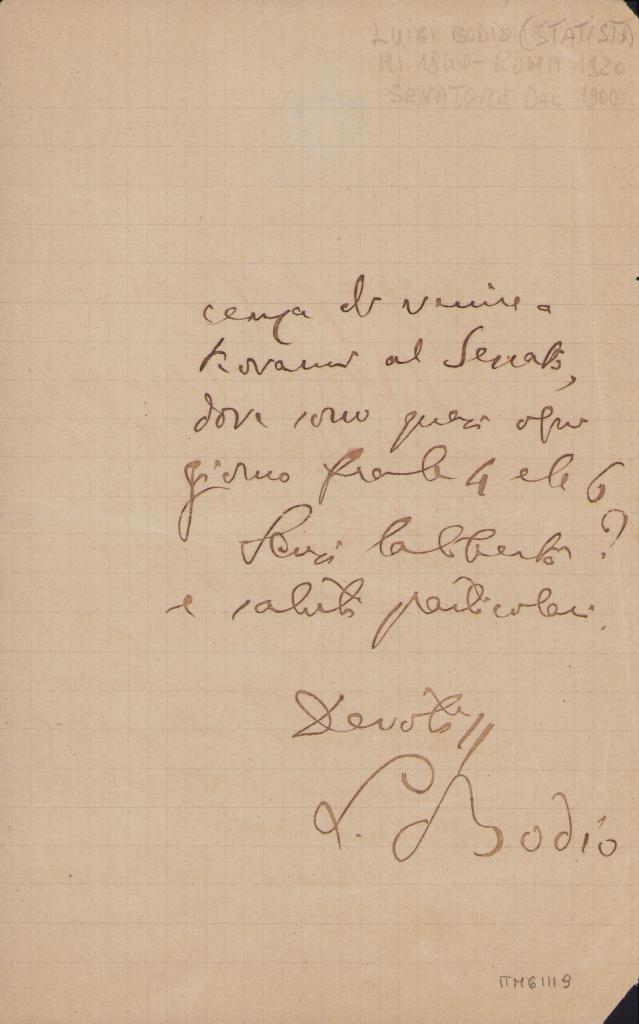 LUIGI BODIO (STATISTA
MI 1840 - ROMA 1920
SENATORE DAL 1900
cenza di venire a
trovarmi al Senato,
dove sono quasi ogni
giorno fra le 4 e le 6?
Scusi la libertà
e saluti particolari.
Devotiss
L. Bodio
ΠM61119